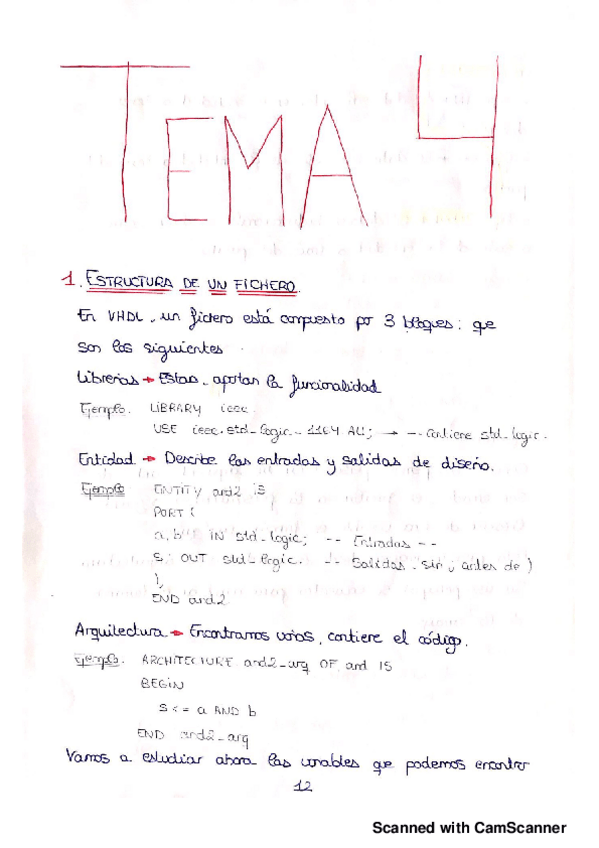 TEMA 4
1. ESTRUCTURA DE UN FICHERO.
En VHDL, un fichero está compuesto por 3 bloques; que
son los siguientes
Librerías → Estas, aportan la funcionalidad
Ejemplo. LIBRARY ieee.
USE ieee.std_logic_1164 ALL; → -- contiene std_logic.
Entidad → Describe las entradas y salidas de diseño.
Ejemplo ENTITY and2 is
PORT (
a, b: IN std_logic; -- Entradas --
s: OUT std_logic. -- Salidas. sin ; antes de )
),
END and2
Arquitectura → Encontramos varias, contiene el código.
Ejemplo. ARCHITECTURE and2_arq OF and IS
BEGIN
s <= a AND b
END and2_arq
Vamos a estudiar ahora las variables que podemos encontrar
12
Scanned with CamScanner